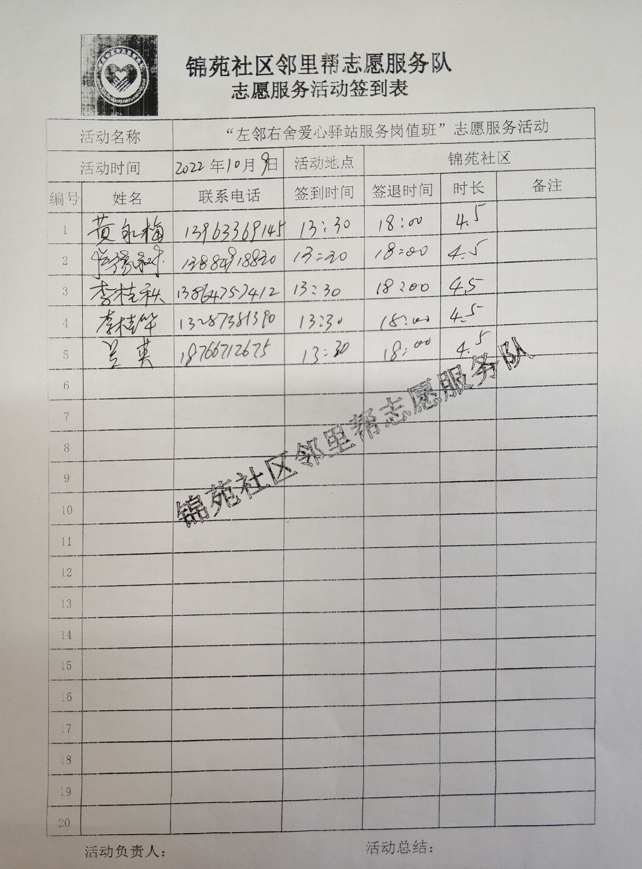 锦苑社区邻里帮志愿服务队
志愿服务活动签到表
活动名称 “左邻右舍爱心驿站服务岗值班”志愿服务活动
活动时间 2022年10月9日 活动地点 锦苑社区
编号 姓名 联系电话 签到时间 签退时间 时长 备注
1 黄 梅 13963369145 13:30 18:00 4.5
2 13:30 18:00 4.5
3 李桂秋 13864757412 13:30 18:00 4.5
4 李桂华 13287381390 13:30 18:00 4.5
5 兰英 18766712675 13:30 18:00 4.5
6
7
8
9
10
11
12
13
14
15
16
17
18
19
20
锦苑社区邻里帮志愿服务队
活动负责人： 活动总结：